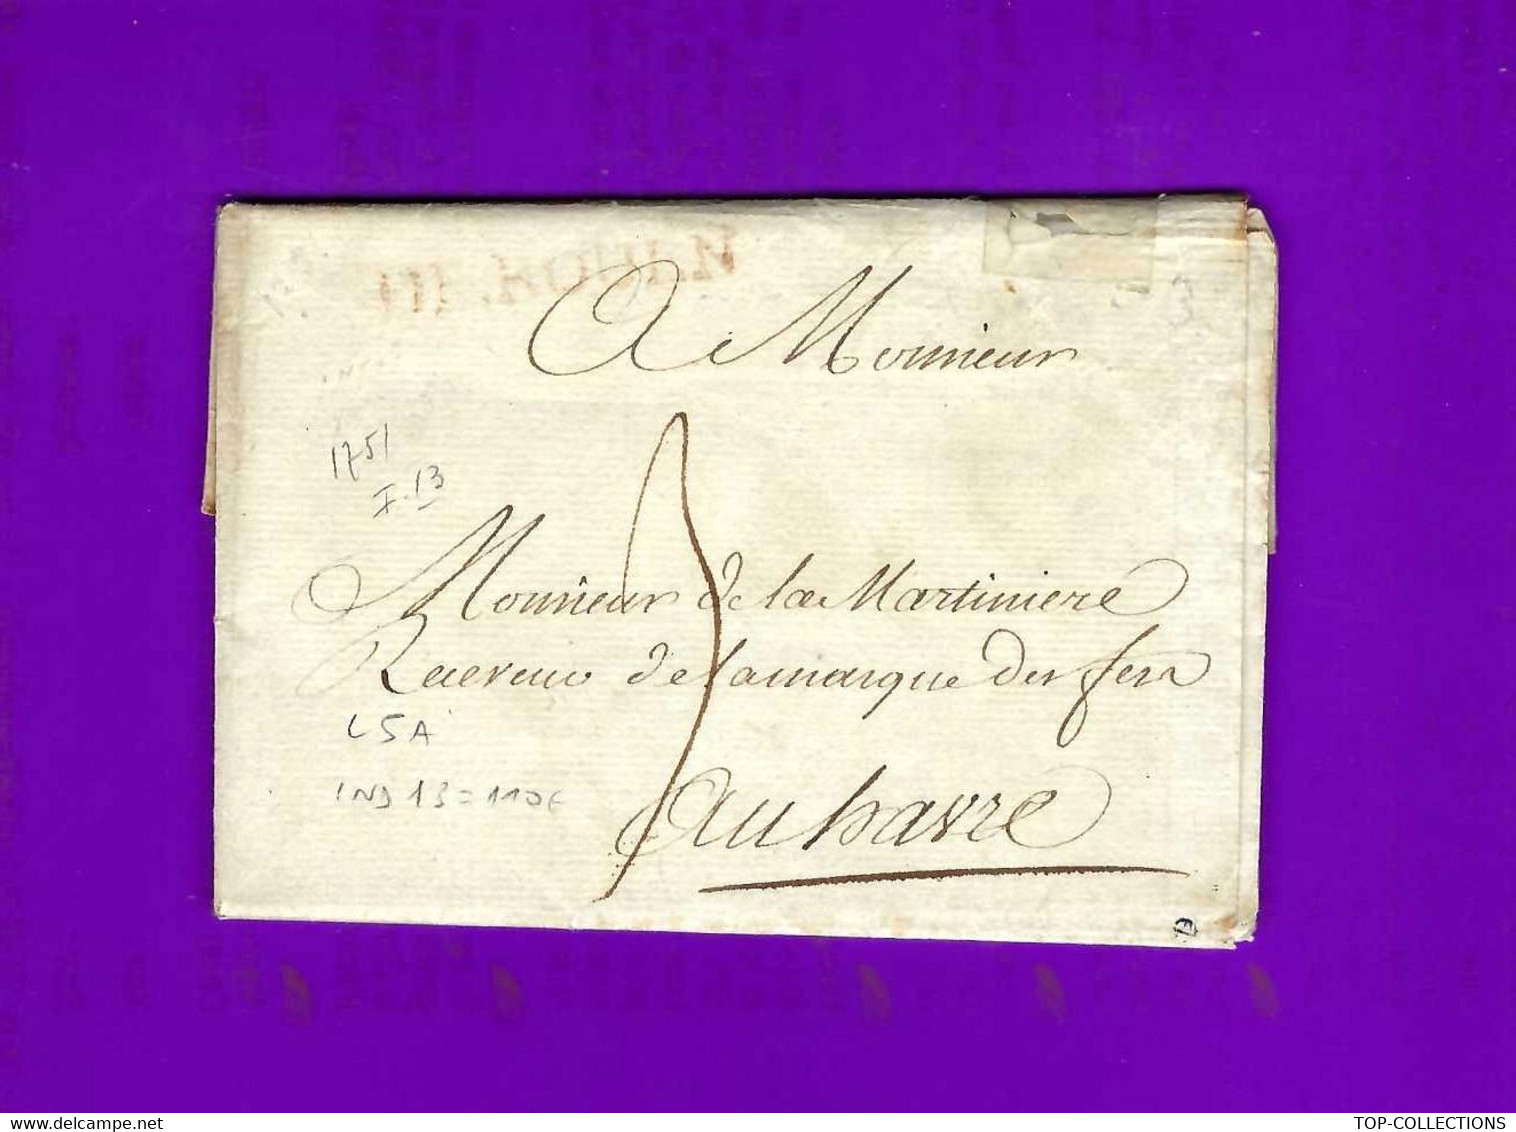 A Monsieur
1751
I.13
Monsieur de la Martiniere
Receveur de la marque des fers
LSA
IND 13 = 110€
au havre
TOP-COLLECTIONS